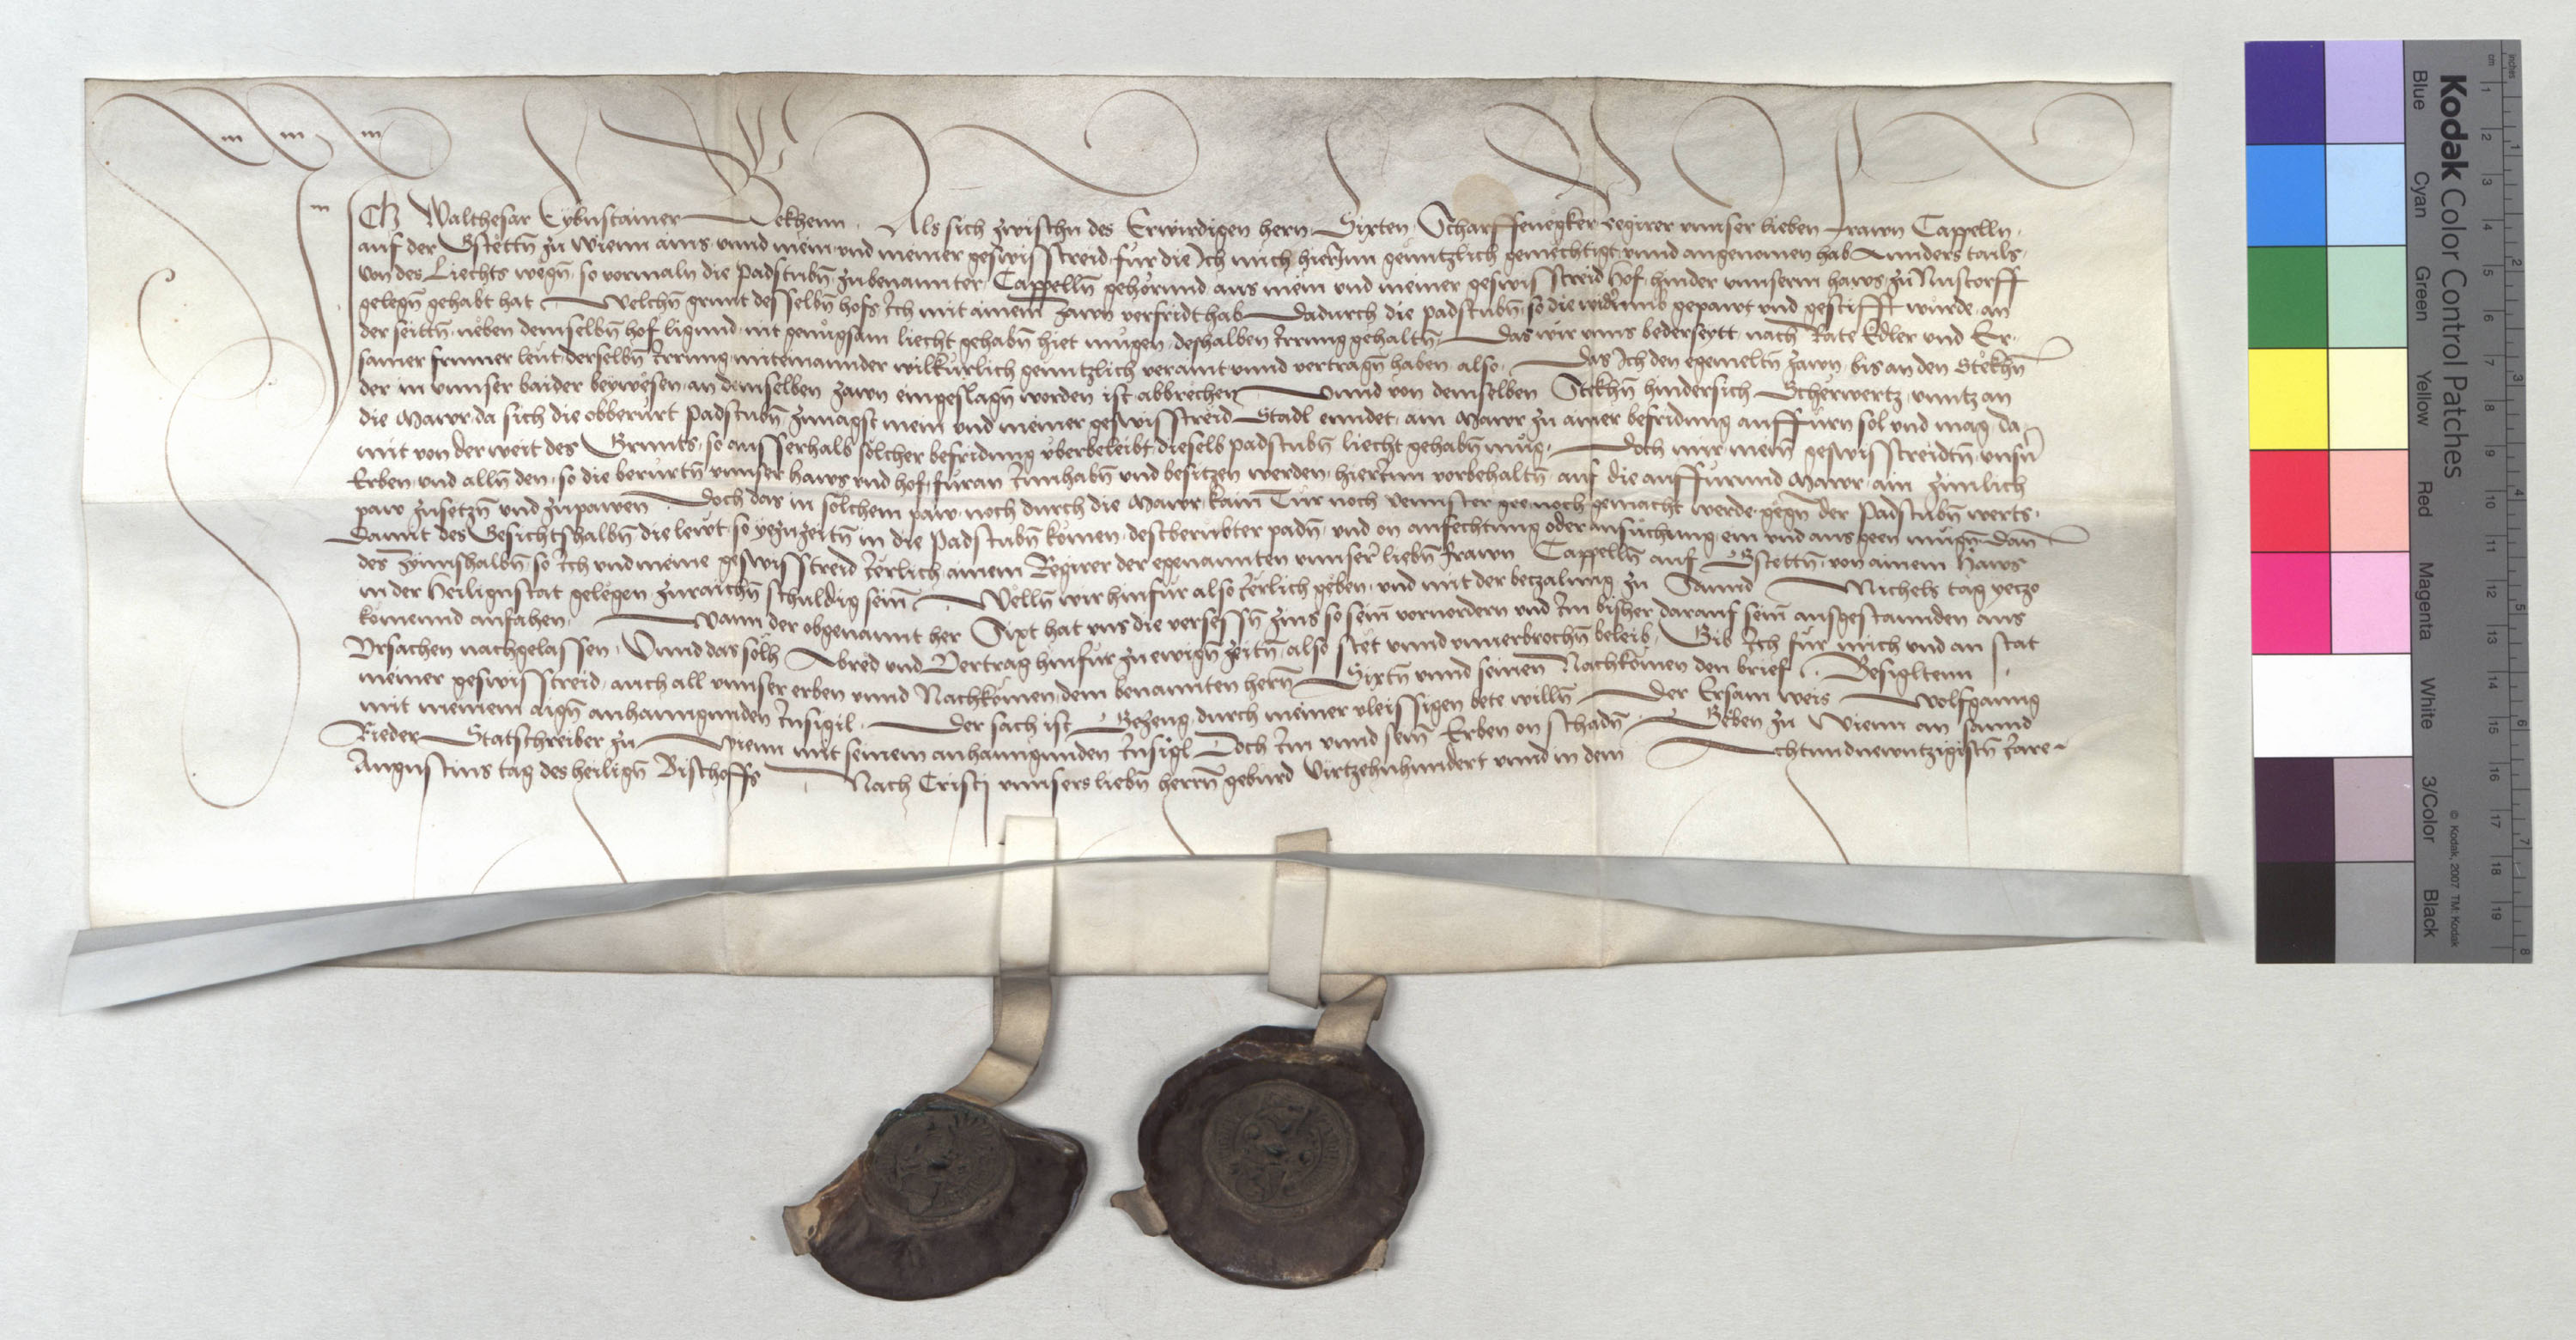 ICh Walthesar Eybnstainer Bekhenn. Als sich zwischn des Erwirdigen hern Sixten Scharffenegker Regirer vnnser lieben Frawn Cappelln
auf der Gstettn̄ zu Wienn ains vnnd mein vnd meiner geswisstreid für die Ich mich hierJnn genntzlich gemechtigt vnnd angenomen hab annders tails
von des Liechts wegn̄ so vormaln die padstubn̄ zu benannter Cappelln̄ gehörund aus mein vnd meiner geswisstreid Hof hinder vnnserm haws zu Nustorff
gelegn̄ gehabt hat Welchn̄ grunt desselbn̄ hofs Ich mit ainem Zawn verfridt hab Dadurch die padstubn̄ so die widerumb gepawt vnd gestifft wurde an
der seittn̄ neben demselbn̄ hof ligund nit genugsam liecht gehabn̄ hiet mugen deshalben Irrung gehaltn̄ Das wir vnns bederseytt nach Rate Edler vnd Er-
samer frumer leut derselbn̄ Irrung miteinannder wilkurlich genntzlich veraint vnnd vertragn̄ haben also Das Ich den egemeltn̄ Zawn bis an den Stekhn̄
der in vnnser baider beywesen an demselben zawn eingeslagn̄ worden ist abbrechen Vnnd von demselben Stekhn̄ hindersich Scherwertz vnntz an
die Mawr da sich die obberurt padstubn̄ zunagst mein vnd meiner geswisstreid Stadl enndet ain Mawr zu ainer befridung auffurn sol vnd mag da-
mit von der weit des Grunts so ausserhalb solcher befridung vberbeleibt dieselb padstubn̄ liecht gehabn̄ mug Doch mir mein̄ geswisstreidtn̄ vnsn̄
Erben vnd alln̄ den so die berurtn̄ vnnser haws vnd hof furan Innhabn̄ vnd besitzen werden hierInn vorbehaltn̄ auf die auffurund Mawr ain zimlich
paw zusetzn̄ vnd zupawen Doch das in solchem paw noch durch die Mawr kain Tur noch vennster gee noch gemacht werde gegn̄ der padstubn̄ werts
Damit des Gesichtshalbn̄ die lewt so yezuzeitn̄ in die padstubn̄ komen destberubter padn̄ vnd on anfechtung oder ansuchung ein vnd aus geen mugn̄ Dan̄
des Zynnshalbn̄ so Ich vnd meine geswisstreid Ierlich ainem Regirer der egenannten vnnser liebn̄ frawn Cappelln̄ auf Gstettn̄ von ainem haws
in der Heilignstat gelegen zuraichn̄ schuldig sein̄ Welln̄ wir hinfur also Ierlich geben vnd mit der beczalung zu Sannd Michels tag yeczo
komennd anfahen Wann der obgenannt her Sixt hat vns die versessn̄ zins so sein̄ vorvordern vnd Im bisher darauf sein̄ ausgestannden aus
Vrsachen nachgelassen Vnnd das solh Abred vnd Vertrag hinfur zu ewign̄ zeitn̄ also stet vnnd vnnerbrochn̄ beleib Gib Ich fur mich vnd an stat
meiner geswisstreid auch all vnnser erben vnnd Nachkomen dem benannten hern̄ Sixtn̄ vnnd seinen Nachkomen den brief Besigltenn
mit meinem aign̄ anhanngunden Insigil Der sach ist Gezeug durch meiner vleissigen bete willn̄ Der Ersam weis Wolfganng
Rieder Statschreiber zu Wienn mit seinem anhanngunden Insigl Doch Im vnnd sein̄ Erben on schadn̄ Geben zu Wienn an sannd
Augustins tag des heilign̄ Bischoffs Nach Cristj vnnsers liebn̄ herrn̄ geburd Virtzehnhundert vnnd in dem Achtundnewntzigistn̄ Jare
Kodak Color Control Patches
Blue Cyan Green Yellow Red Magenta White 3/Color Black
© Kodak, 2007 TM: Kodak
cm 1 2 3 4 5 6 7 8 9 10 11 12 13 14 15 16 17 18 19
inches 1 2 3 4 5 6 7 8